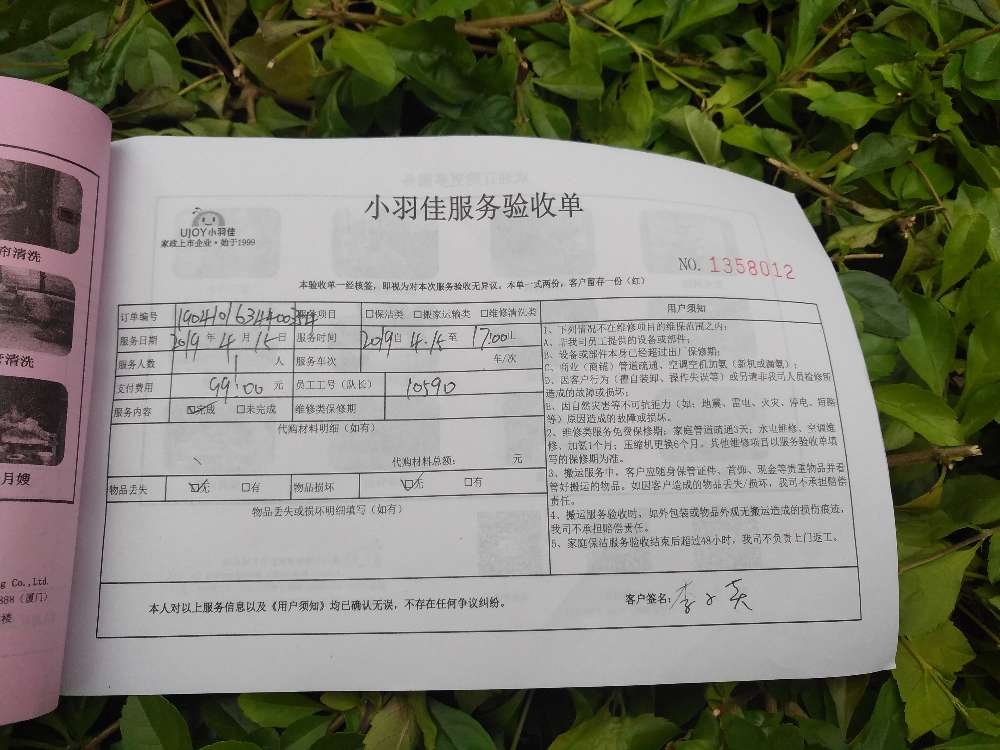 市清洗
清洗
月嫂
g Co.,Ltd.
888（厦门）
楼
UJOY小羽佳
家政上市企业·始于1999
小羽佳服务验收单
NO. 1358012
本验收单一经核签，即视为对本次服务验收无异议。本单一式两份，客户留存一份（红）
订单编号 服务项目 □保洁类 □搬家运输类 □维修清洗类
服务日期 2019 年 4 月 15 日 服务时间 2019 4.15 至 17:00
服务人数 1 人 服务车次 车/次
支付费用 99:00 元 员工工号（队长） 10590
服务内容 ☑完成 □未完成 维修类保修期
代购材料明细（如有）
代购材料总额： 元
物品丢失 ☑无 □有 物品损坏 ☑无 □有
物品丢失或损坏明细填写（如有）
用户须知
1、下列情况不在维修项目的维保范围之内：
A、非我司员工提供的设备或部件；
B、设备或部件本身已经超过出厂保修期；
C、商业（商铺）管道疏通、空调空机加氟（新机或漏氟）；
D、因客户行为（擅自装卸、操作失误等）或另请非我司人员检修所
造成的故障或损坏；
E、因自然灾害等不可抗拒力（如：地震、雷电、火灾、停电、短路
等）原因造成的故障或损坏。
2、维修类服务免费保修期：家庭管道疏通3天；水电维修、空调维
修、加氟1个月；压缩机更换6个月。其他维修项目以服务验收单填
写的保修期为准。
3、搬运服务中，客户应随身保管证件、首饰、现金等贵重物品并看
管好搬运的物品。如因客户造成的物品丢失/损坏，我司不承担赔偿
责任。
4、搬运服务验收时，如外包装或物品外观无搬运造成的损伤痕迹，
我司不承担赔偿责任。
5、家庭保洁服务验收结束后超过48小时，我司不负责上门返工。
本人对以上服务信息以及《用户须知》均已确认无误，不存在任何争议纠纷。
客户签名：